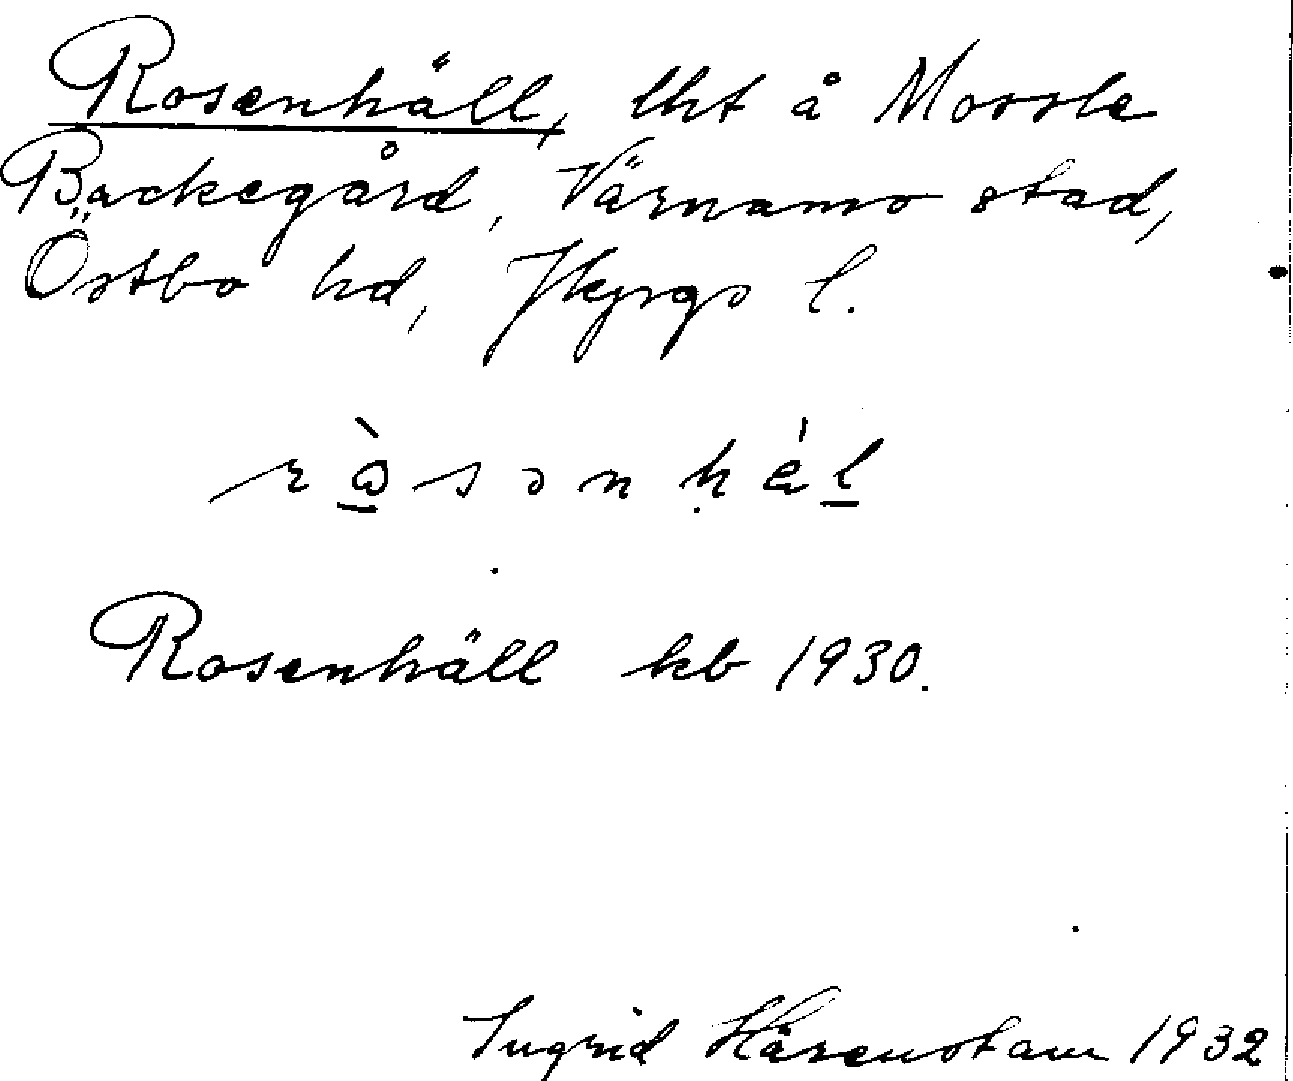 Rosenhäll, lht å Mossle
Backegård, Värnamo stad,
Östbo hd, Jkpgs l.
Rosenhäll kb 1930.
Ingrid Härenstam 1932